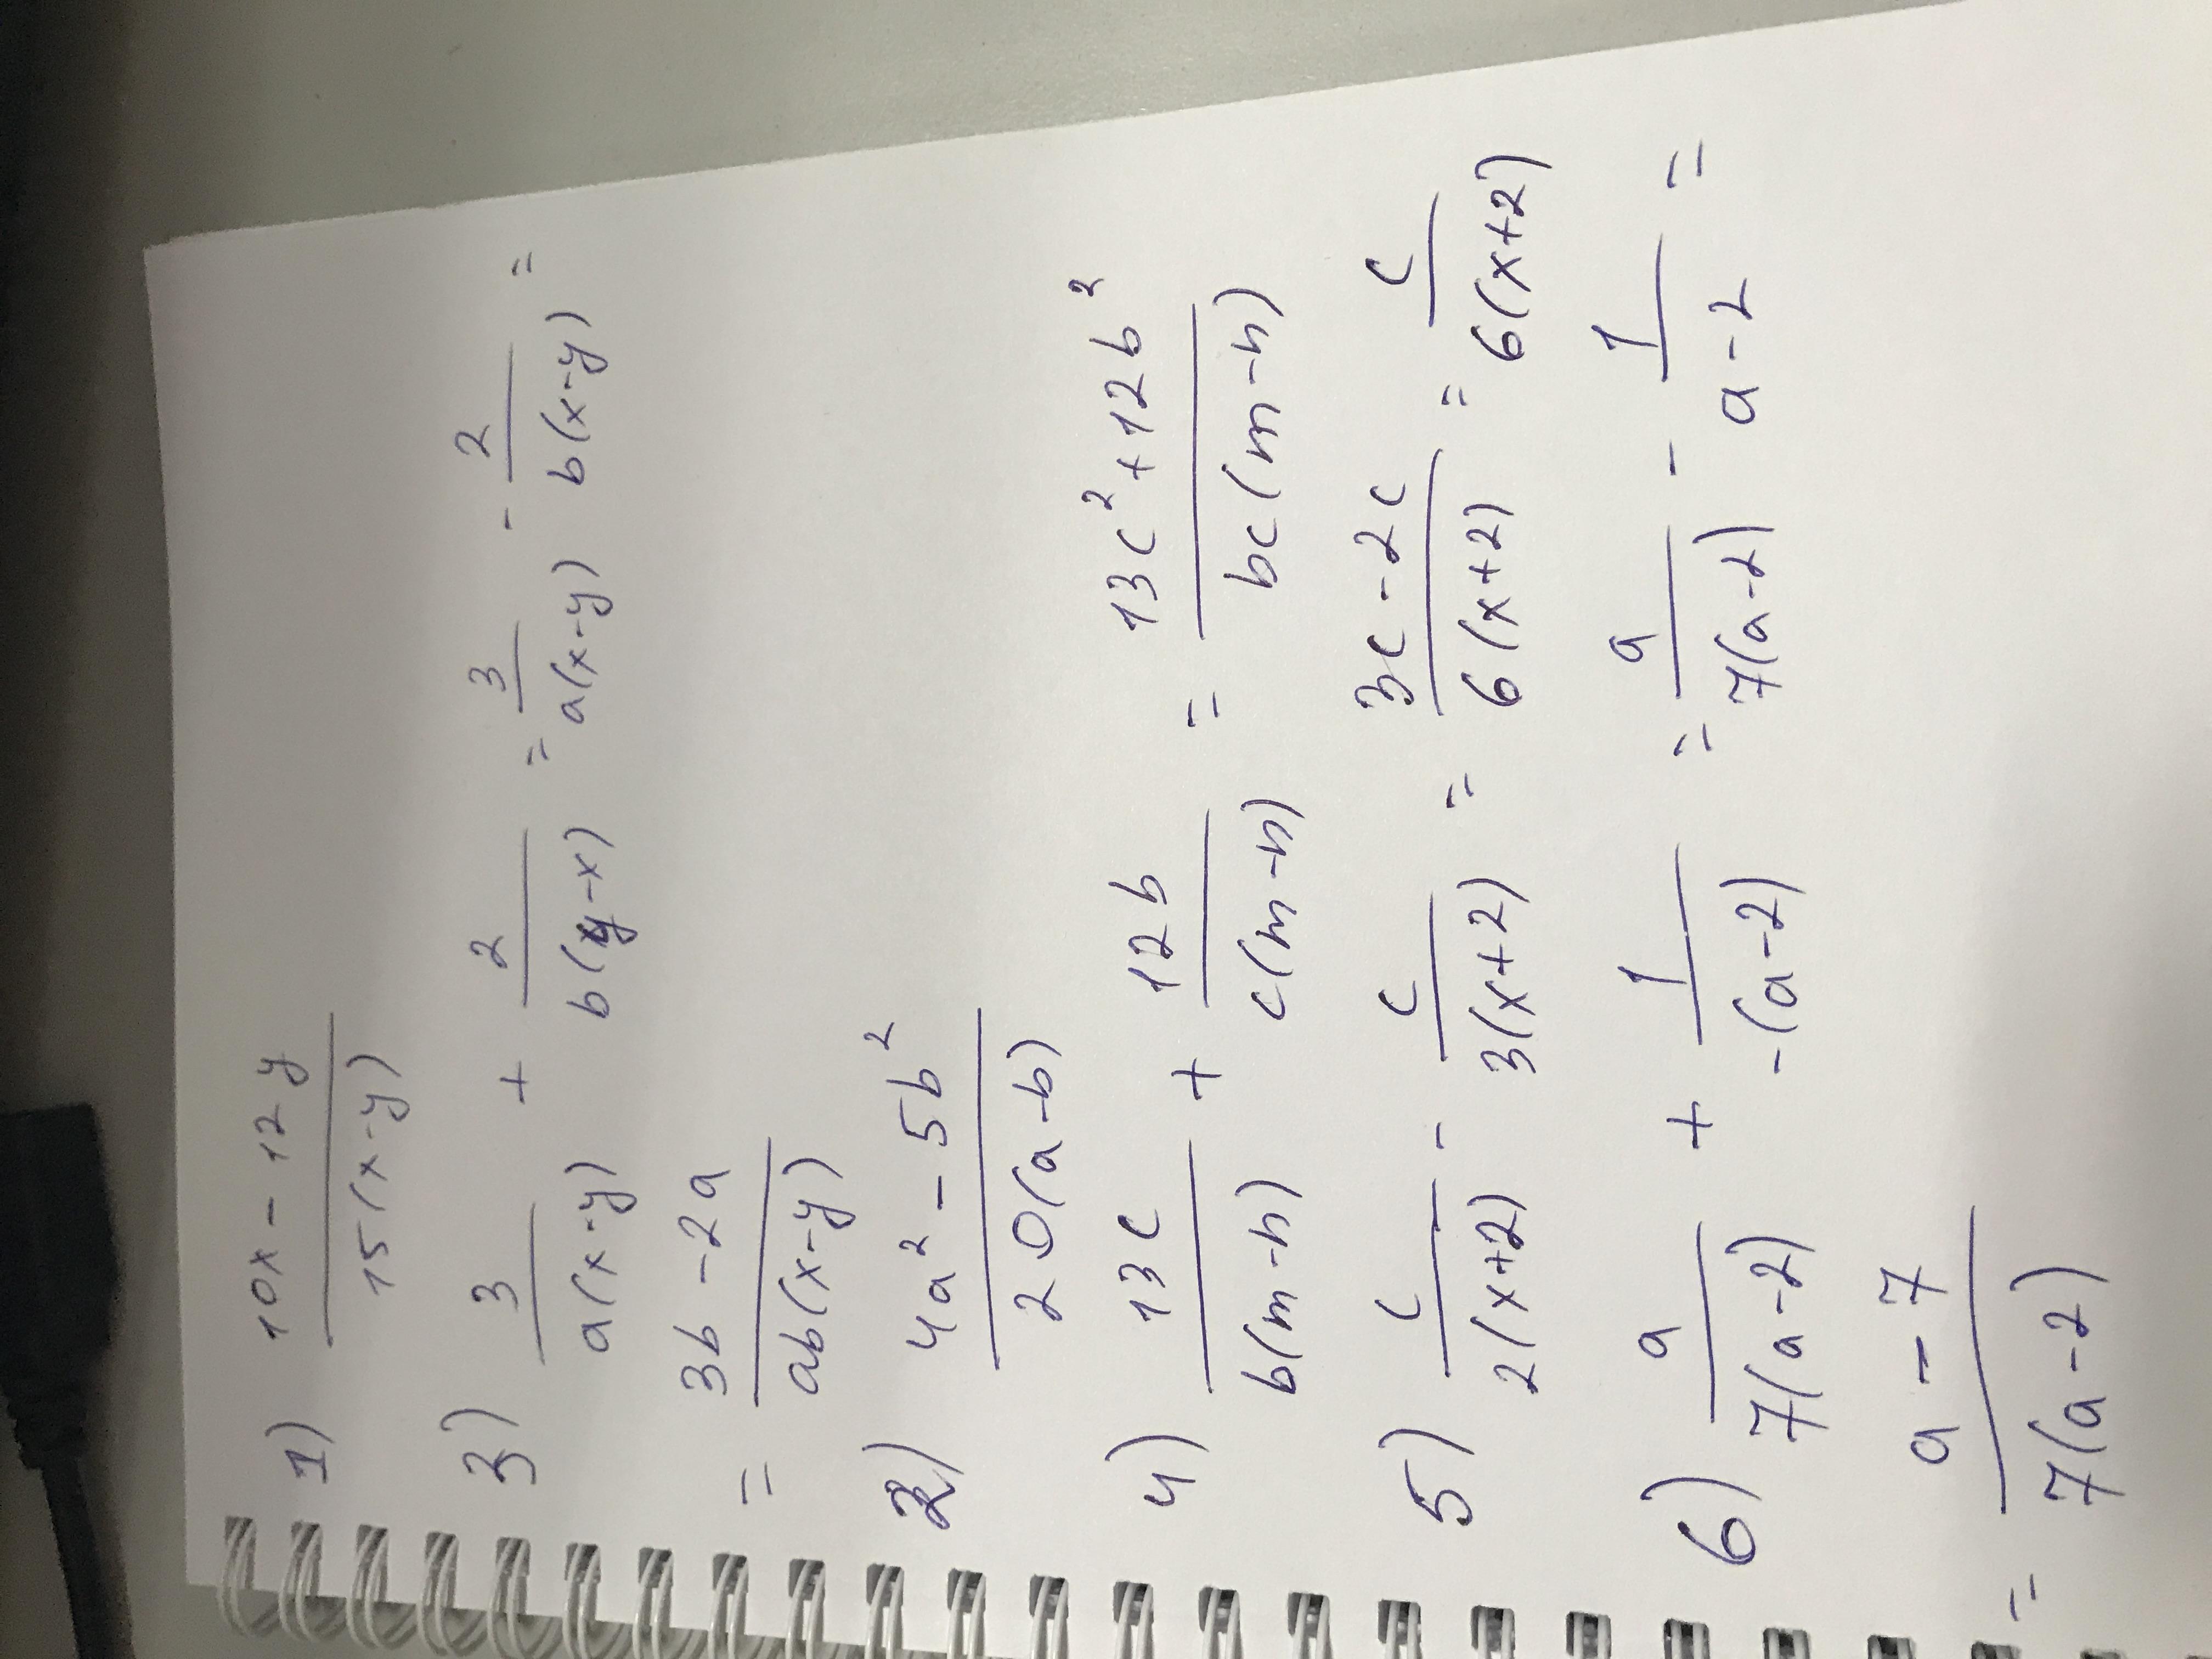 1) (10x - 12y)/(15(x-y))
3) 3/(a(x-y)) + 2/(b(y-x)) = 3/(a(x-y)) - 2/(b(x-y)) =
= (3b - 2a)/(ab(x-y))
2) (4a² - 5b²)/(20(a-b))
4) 13c/(b(m-n)) + 12b/(c(m-n)) = (13c² + 12b²)/(bc(m-n))
5) c/(2(x+2)) - c/(3(x+2)) = (3c - 2c)/(6(x+2)) = c/(6(x+2))
6) a/(7(a-2)) + 1/(-(a-2)) = a/(7(a-2)) - 1/(a-2) =
= (a - 7)/(7(a-2))